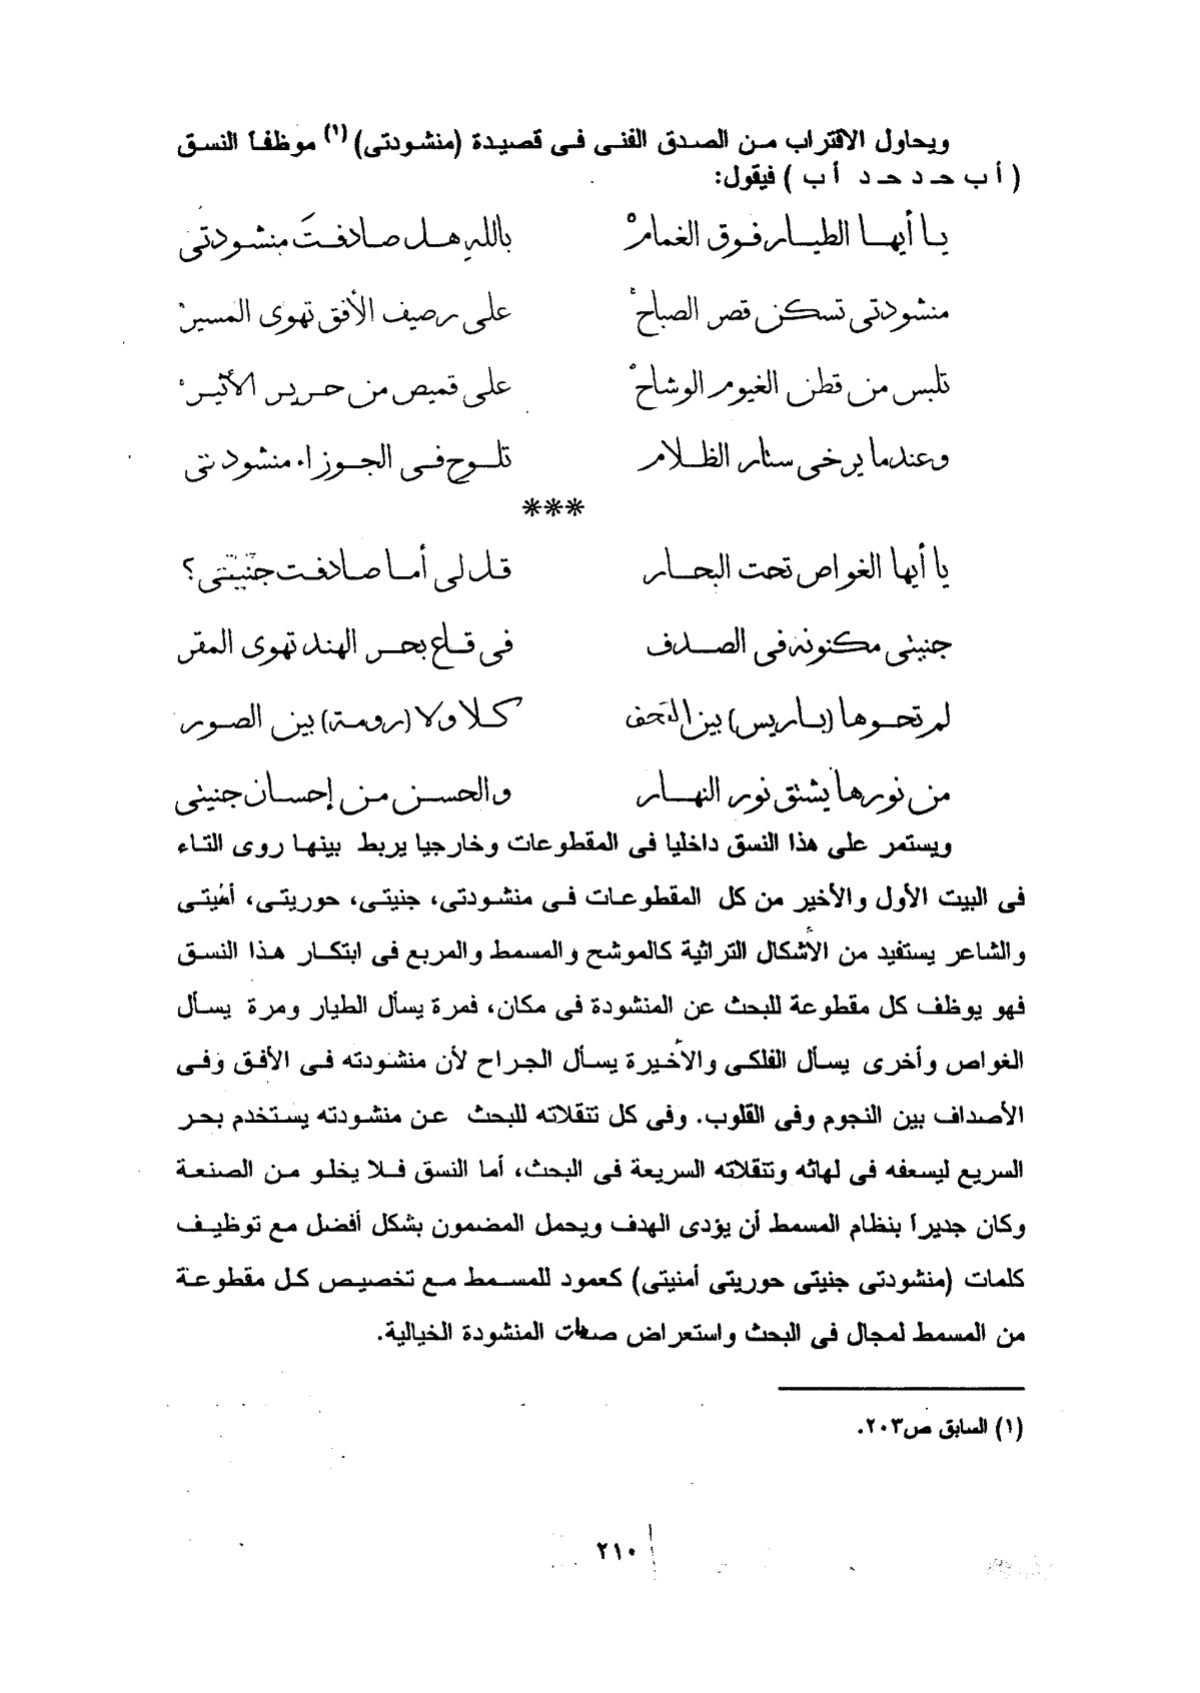 ويحاول الاقتراب من الصدق الفنى فى قصيدة (منشودتى) (١) موظفاً النسق
( أ ب حـ د حـ د أ ب ) فيقول:
يا أيها الطيار فوق الغمامْ باللهِ هل صادفتَ منشودتى
منشودتى تسكن قصر الصباحْ على رصيف الأفق تهوى المسيرْ
تلبس من قطن الغيوم الوشاحْ على قميص من حرير الأثيرْ
وعندما يرخى ستار الظلام تلوح فى الجوزاء منشودتى
***
يا أيها الغواص تحت البحار قل لى أما صادفت جنيّتى؟
جنيتى مكنونة فى الصدف فى قاع بحر الهند تهوى المقر
لم تحوها (باريس) بين التحف كلا ولا (رومة) بين الصور
من نورها يشتق نور النهار والحسن من إحسان جنيتى
ويستمر على هذا النسق داخليا فى المقطوعات وخارجيا يربط بينها روى التاء
فى البيت الأول والأخير من كل المقطوعات فى منشودتى، جنيتى، حوريتى، أمنيتى
والشاعر يستفيد من الأشكال التراثية كالموشح والمسمط والمربع فى ابتكار هذا النسق
فهو يوظف كل مقطوعة للبحث عن المنشودة فى مكان، فمرة يسأل الطيار ومرة يسأل
الغواص وأخرى يسأل الفلكى والأخيرة يسأل الجراح لأن منشودته فى الأفق وفى
الأصداف بين النجوم وفى القلوب. وفى كل تنقلاته للبحث عن منشودته يستخدم بحر
السريع ليسعفه فى لهاثه وتنقلاته السريعة فى البحث، أما النسق فلا يخلو من الصنعة
وكان جديراً بنظام المسمط أن يؤدى الهدف ويحمل المضمون بشكل أفضل مع توظيف
كلمات (منشودتى جنيتى حوريتى أمنيتى) كعمود للمسمط مع تخصيص كل مقطوعة
من المسمط لمجال فى البحث واستعراض صفات المنشودة الخيالية.
(١) السابق ص٢٠٣.
٢١٠